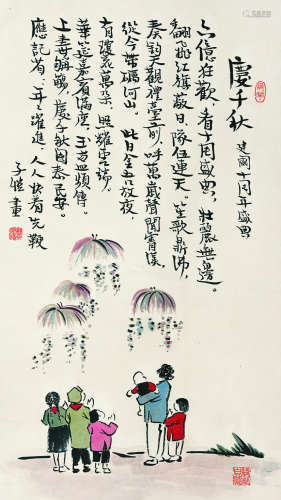 慶千秋
建國十周年盛典
六億狂歡，看十周盛典，壯麗無邊。
翻飛紅旗蔽日，隊伍連天。笙歌鼎沸，
奏鈞天觀禮臺前，呼萬歲聲聞霄漢，
從今帶礪河山。此日金吾放夜，
有瓊花萬朵，照耀
華筵嘉賓滿席，頻傳。
上壽觥觴，慶千秋國泰民安。
應記省，年年躍進，人人快着先鞭
子愷畫